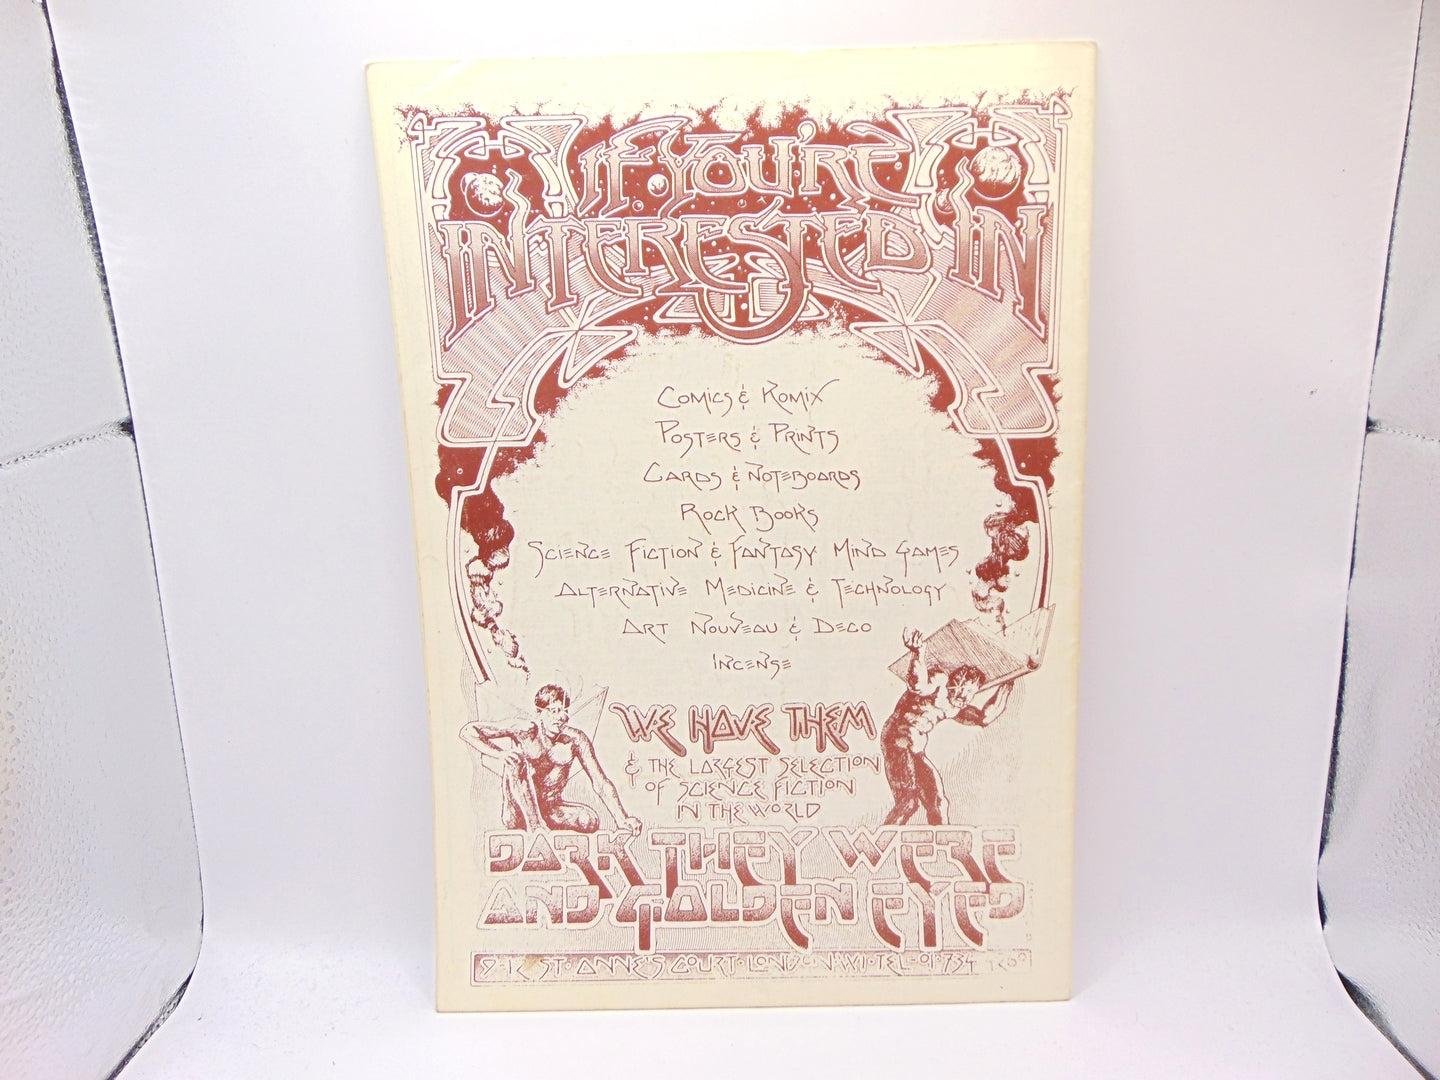 IF YOU'RE
INTERESTED IN
COMICS & KOMIX
POSTERS & PRINTS
CARDS & NOTEBOARDS
ROCK BOOKS
SCIENCE FICTION & FANTASY MIND GAMES
ALTERNATIVE MEDICINE & TECHNOLOGY
ART NOUVEAU & DECO
INCENSE
WE HAVE THEM
& THE LARGEST SELECTION
OF SCIENCE FICTION
IN THE WORLD
DARK THEY WERE
AND GOLDEN EYED
9-12 ST·ANNE'S COURT·LONDON·W1·TEL·01·734